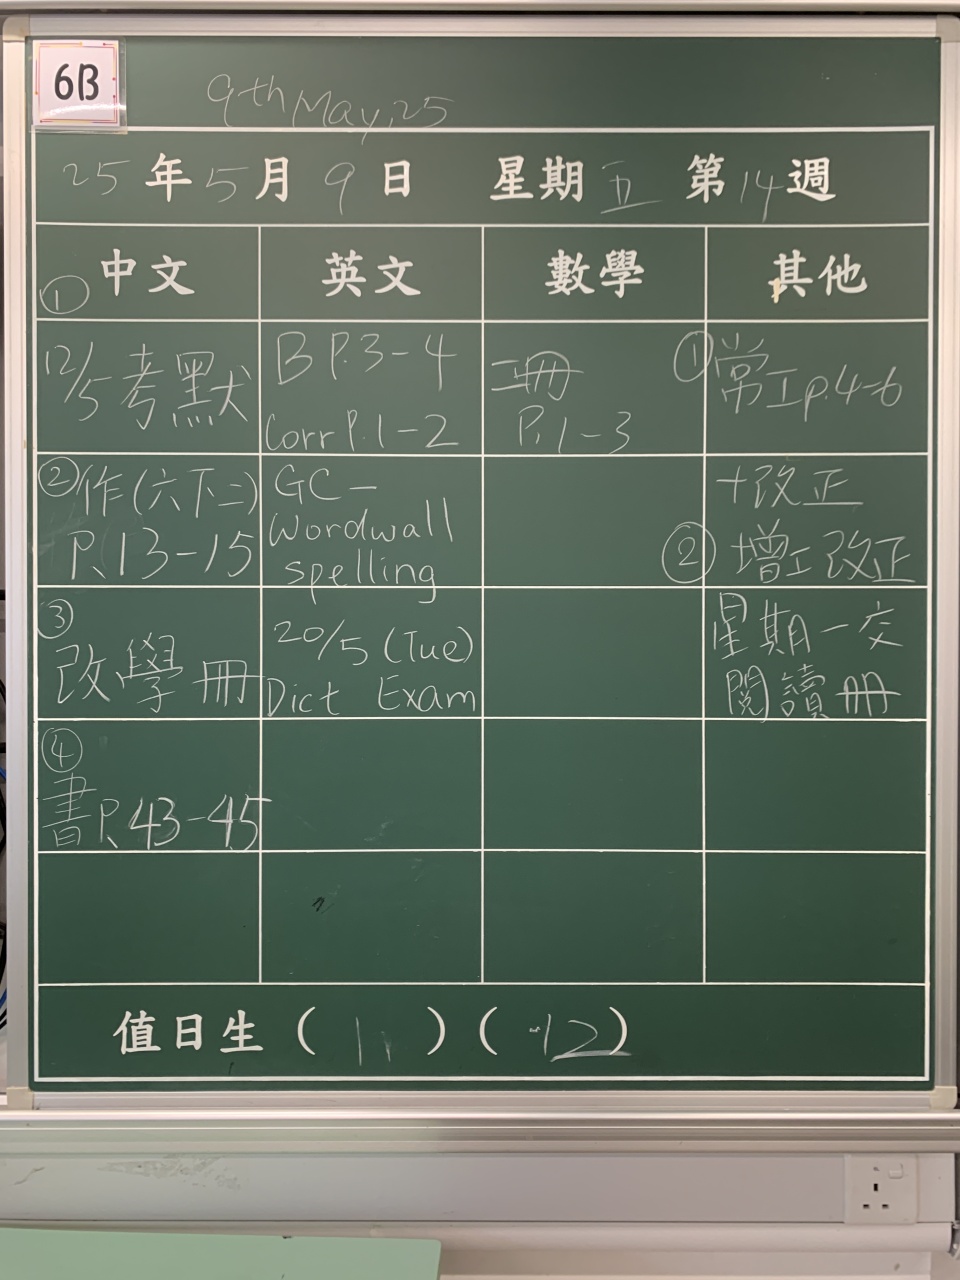 6B
9th May, 25
25年5月9日 星期五 第14週
中文 英文 數學 其他
①
12/5 考默
B P.3-4
Corr P.1-2
二冊
P.1-3
①常工p.4-6
②作(六下二)
P.13-15
GC-
Wordwall
spelling
+改正
②增工改正
③
改學冊
20/5 (Tue)
Dict Exam
星期一交
閱讀冊
④
書P.43-45
值日生 ( 11 ) ( 12 )